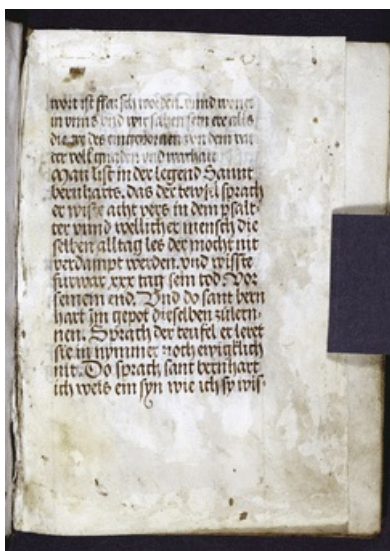 wort ist flaisch worden. vnnd wonet
in vnns vnd wir sahen sein ere als
die ere des eingebornen von dem vat
ter voll gnaden vnd warhait
Man list in der legend Sannt
bernharts. das der tewfel sprach
er wiste acht vers in dem psalt-
ter vnnd wellicher mensch die
selben alltag les der mocht nit
verdampt werden. vnd wisste
furwar xxx tag sein tod Vor
seinem end. Vnd do sant bern
hart im gepot dieselben zulern-
nen. Sprach der teufel er leret
sie in nymmer noch ewigklich
nit. Do sprach sant bernhart
ich weis ein syn wie ich sy wis-